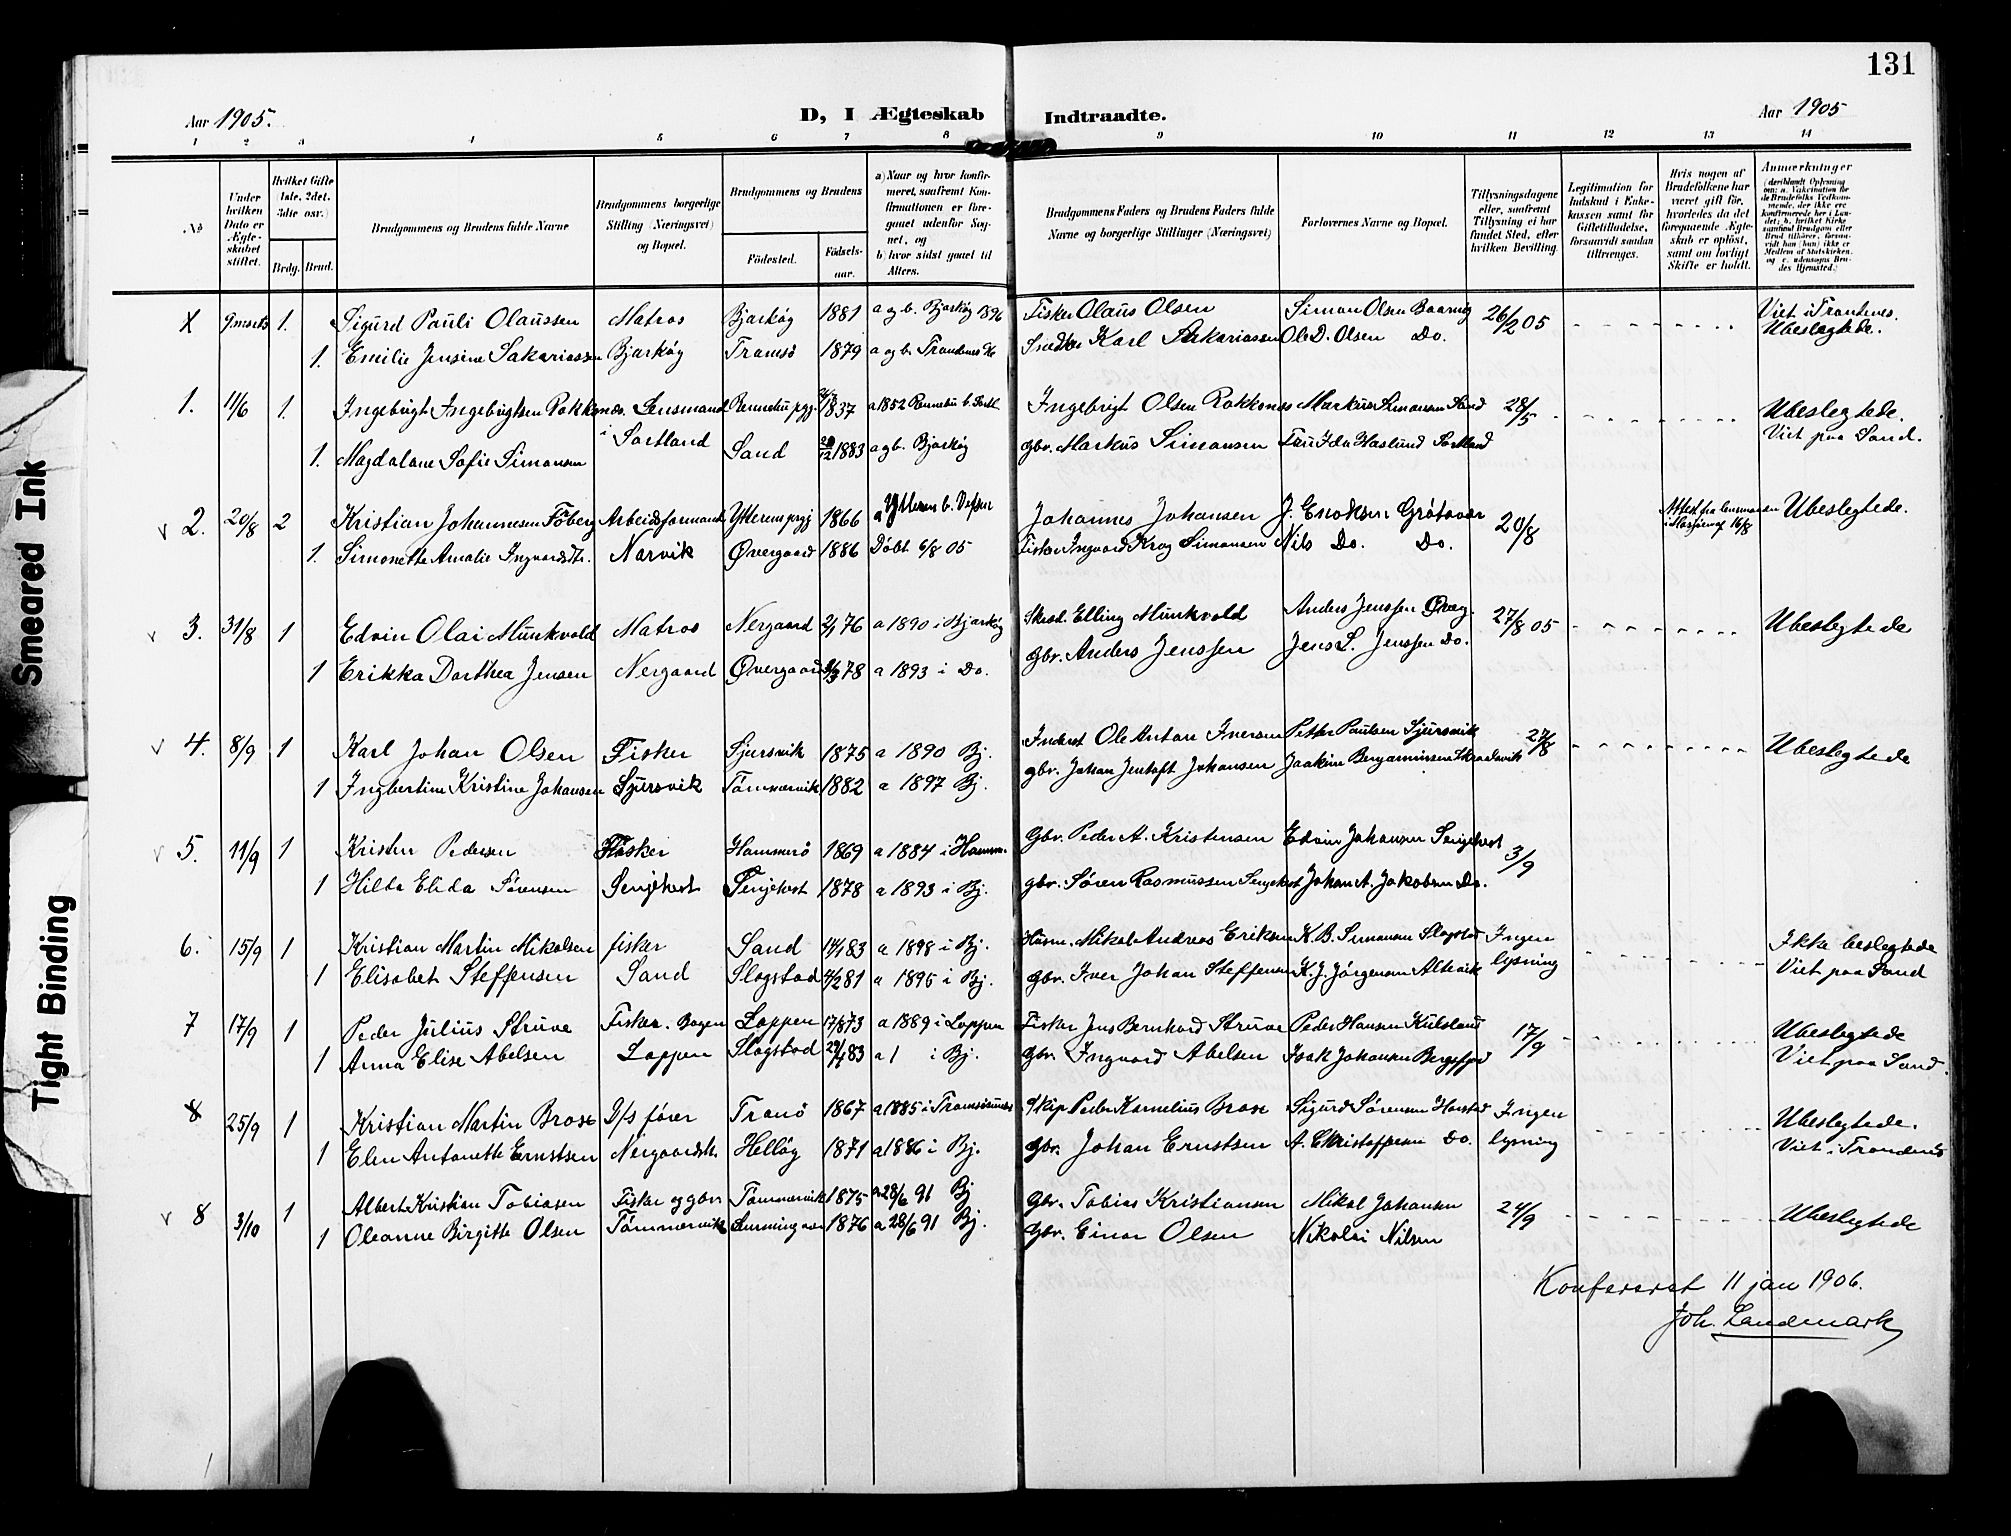 131
Smeared Ink
Tight Binding
Aar 1905.
D, I Ægteskab Indtraadte.
Aar 1905
1 2 3 4 5 6 7 8 9 10 11 12 13 14
No
Under hvilken Dato er Ægteskabet stiftet.
Hvilket Gifte (1ste, 2det, 3die osv.)
Brdg. Brud.
Brudgommens og Brudens fulde Navne
Brudgommens borgerlige Stilling (Næringsvei) og Bopæl.
Brudgommens og Brudens
Fødested.
Fødselsaar.
a) Naar og hvor konfirmeret, saafremt Konfirmationen er foregaaet udenfor Sognet, og
b) hvor sidst gaaet til Alters.
Brudgommens Faders og Brudens Faders fulde Navne og borgerlige Stillinger (Næringsvei)
Forlovernes Navne og Bopæl.
Tillysningsdagene eller, saafremt Tillysning ei har fundet Sted, efter hvilken Bevilling.
Legitimation for Indskud i Enkekassen samt for Giftetilladelse, forsaavidt saadan tiltrænges.
Hvis nogen af Brudefolkene har været gift før, hvorledes da det foregaaende Ægteskab er opløst, samt om lovligt Skifte er holdt.
Anmærkninger
X 9 marts 1. Sigurd Pauli Olaussen Matros Bjarkøy 1881 a og b. Bjarkøy 1896 Fisker Olaus Olsen Simon Olsen 26/2 05 Viet i Trondenes. Ubeslegtede.
1. Emilie Jensine Sakariassen Bjarkøy Tromsö 1879 a og b. Trondenes Karl Sakariassen Ole D. Olsen Do.
1. 11/6 1. Ingebrigt Ingebrigtsen Rokkones. Lensmand Rennebu pgj. 1837 a 1852 Rennebu b. Sortl. Ingebrigt Olsen Rokkones Markus Simonsen Sand 28/5 Ubeslegtede.
i Sortland Viet paa Sand.
1. Magdalone Sofie Simonsen Sand 1883 a og b. Bjarkøy gbr. Markus Simonsen Fru Ida Haslund Sortland
v 2. 20/8 2 Kristian Johannesen Arbeidsformand Ytterens prgj 1866 a Ytteren b. Vefsen Johannes Johansen J. Enoksen Grötavær 20/8 Attest fra lensmanden 16/8 Ubeslegtede.
1. Simonette Amalie Ingvardsdtr. Narvik Øvergaard 1886 Döbt 6/8 05 Fisker Ingvard Krog Simonsen Nils Do. Do.
v 3. 31/8 1 Edvin Olai Munkvold Matros Nergaard 2/1 76 a 1890 i Bjarkøy Elling Munkvold Anders Jenssen Øverg. 27/8 05 Ubeslegtede
1 Erikka Dorthea Jensen Nergaard Øvergaard 78 a 1893 i Do. gbr. Anders Jenssen Jens L. Jenssen Do.
v 4. 8/9 1 Karl Johan Olsen Fisker Sjursvik 1875 a 1890 Bj. Inderst Ole Anton Iversen Petter Paulsen Sjursvik 27/8 Ubeslegtede
1 Ingbertine Kristine Johansen Sjursvik Tömmervik 1882 a 1897 Bj. gbr. Johan Jentoft Johansen Joakim Benjaminsen
v 5. 11/9 1 Krister Pedersen Fisker Hammerö 1869 a 1884 i Hamm. Gbr. Peder A. Kristensen Edvin Johansen Senjehest 3/9
1 Hilda Elida Sörensen Senjehest Senjehest 1878 a 1893 i Bj. gbr. Sören Rasmussen Senjehest Johan A. Jakobsen Do.
6. 15/9 1 Kristian Martin Mikalsen fisker Sand 83 a 1898 i Bj. Husm. Mikal Andreas Eriksen K. B. Simonsen Slogstad Ingen Ikke beslegtede
1 Elisabet Steffensen Sand Slogstad 81 a 1895 i Bj. gbr. Iver Johan Steffensen K. J. Jörgensen Altevik lysning Viet paa Sand
7 17/9 1 Peder Julius Struve Fisker. Bogen Loppen 17/8 73 a 1889 i Loppen Fisker Jens Bernhard Struve Peder Hansen 17/9 Ubeslegtede
1 Anna Elise Abelsen Loppen Slogstad 83 a 1 i Bj. Gbr. Ingvard Abelsen Isak Johansen Bergsfjord Viet paa Sand.
8 25/9 1 Kristian Martin Brose D/s förer Tranö 1867 a 1885 i Tromsösund Skip Peder Kornelius Brose Sigurd Sörensen Harstad Ingen Ubeslegtede.
1 Elen Antonette Ernstsen Nergaardsh. Helløy 1871 a 1886 i Bj. gbr. Johan Ernstsen A. Christoffersen Do. lysning Viet i Trondenes
v 8 3/10 1 Albert Kristian Tobiasen Fisker og gbr Tömmervik 1875 a 28/6 91 Bj Gbr. Tobias Kristiansen Mikal Johansen 24/9 Ubeslegtede
1 Oleanne Birgitte Olsen Tömmervik 1876 a 28/6 91 Bj. Gbr. Einar Olsen Nikolai Nilsen
Konfereret 11 jan 1906.
Joh. Landmark